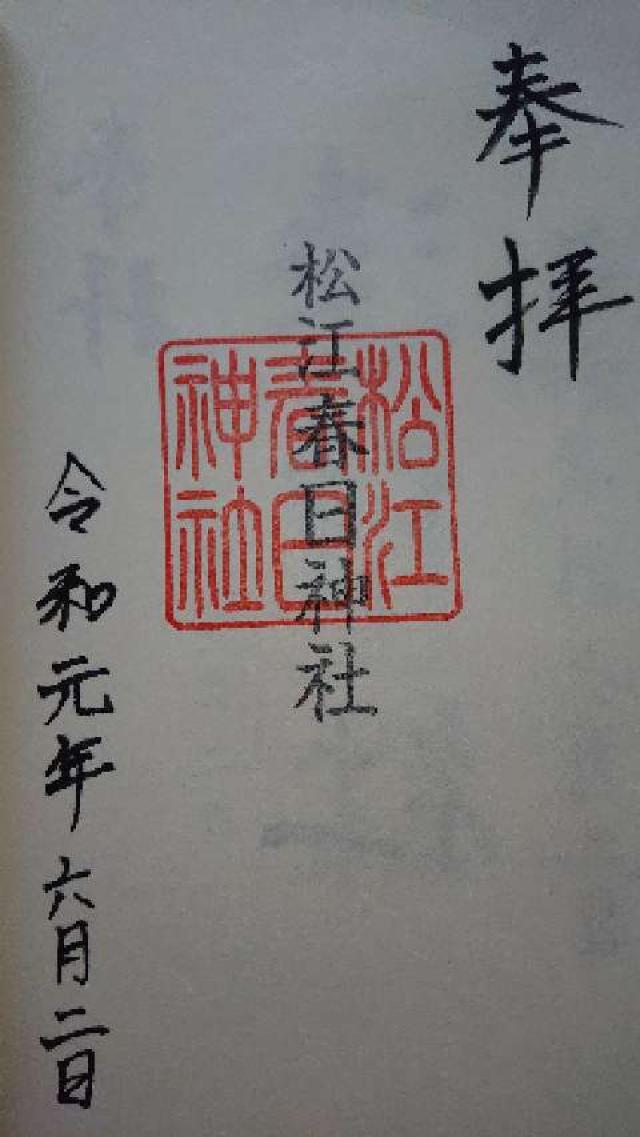 奉拝
松江春日神社
松江
春日
神社
令和元年六月二日